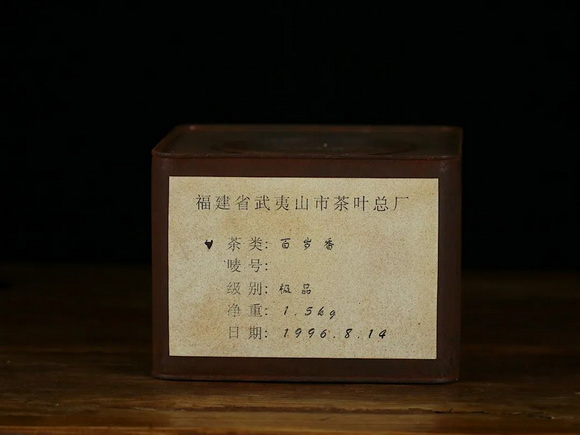 福建省武夷山市茶叶总厂
茶类: 百岁香
唛号:
级别: 极品
净重: 1.5kg
日期: 1996.8.14